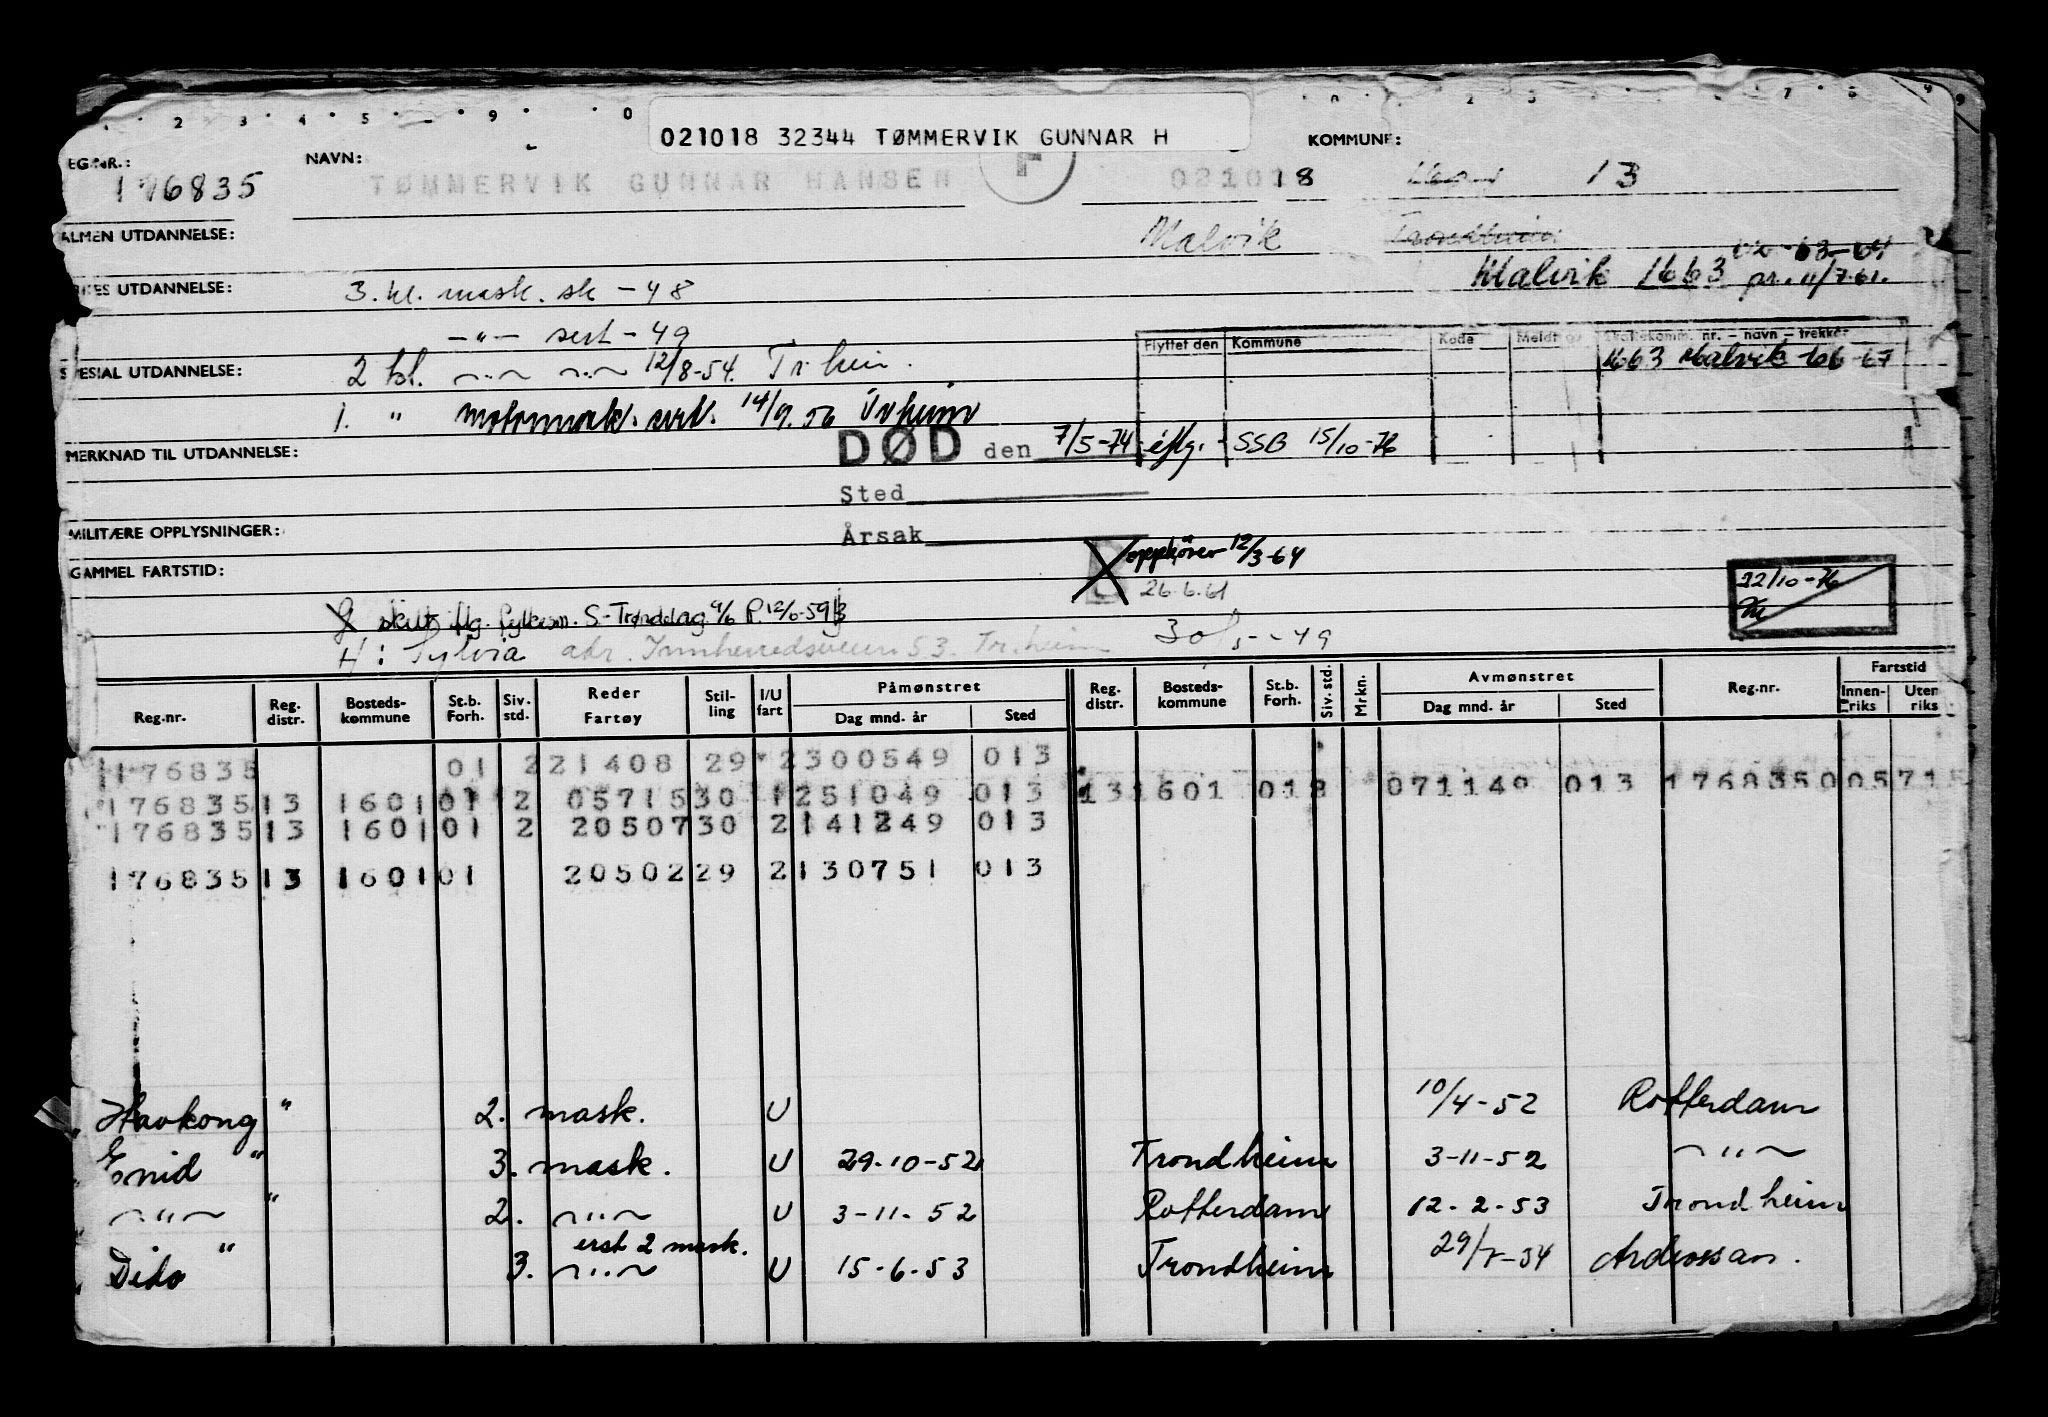 021018 32344 TØMMERVIK GUNNAR H
EG.NR.: 176835 NAVN: TØMMERVIK GUNNAR HANSEN 021018 KOMMUNE: 13
ALMEN UTDANNELSE: Malvik Trondheim
Malvik 1663 pr. 11/7-61.
RKES UTDANNELSE: 3. kl. mask. sk - 48
-"- sert - 49
Flyttet den Kommune Kode Meldt Skattekomm. nr. - navn - trekkår
SPESIAL UTDANNELSE: 2 kl. -"- -"- 12/8-54. Tr.heim. 1663 Malvik 66-67
1. " motormask. sert. 14/9.56 Tr heim
MERKNAD TIL UTDANNELSE: DØD den 7/5-74 iflg. SSB 15/10-76
Sted
MILITÆRE OPPLYSNINGER: Årsak
opphører 12/3-64
GAMMEL FARTSTID: 26.6.61 22/10-76
skilt iflg. fylkesm. S-Trøndelag 9/6 P. 12/6-59
H: Sylvia adr. Innherredsveien 53. Tr.heim 30/5-49
Reg.nr. Reg. distr. Bosteds-kommune St.b. Forh. Siv. std. Reder Fartøy Stil-ling I/U fart Påmønstret Dag mnd. år Sted Reg. distr. Bosteds-kommune St.b. Forh. Siv. std. Mrkn. Avmønstret Dag mnd. år Sted Reg.nr. Fartstid Innen-riks Uten riks
176835 01 2 21408 29 2 300549 013
176835 13 1601 01 2 05715 30 1 251049 013 13 1601 01 071149 013 176835 005715
176835 13 1601 01 2 20507 30 2 141249 013
176835 13 1601 01 20502 29 2 130751 013
Havkong " 2. mask. U 10/4-52 Rotterdam
Enid " 3. mask. U 29-10-52 Trondheim 3-11-52 -"-
-"- " 2. -"- U 3-11-52 Rotterdam 12-2-53 Trondheim
erst 2 mask.
Dido " 3. -"- U 15-6-53 Trondheim Ardrossan.